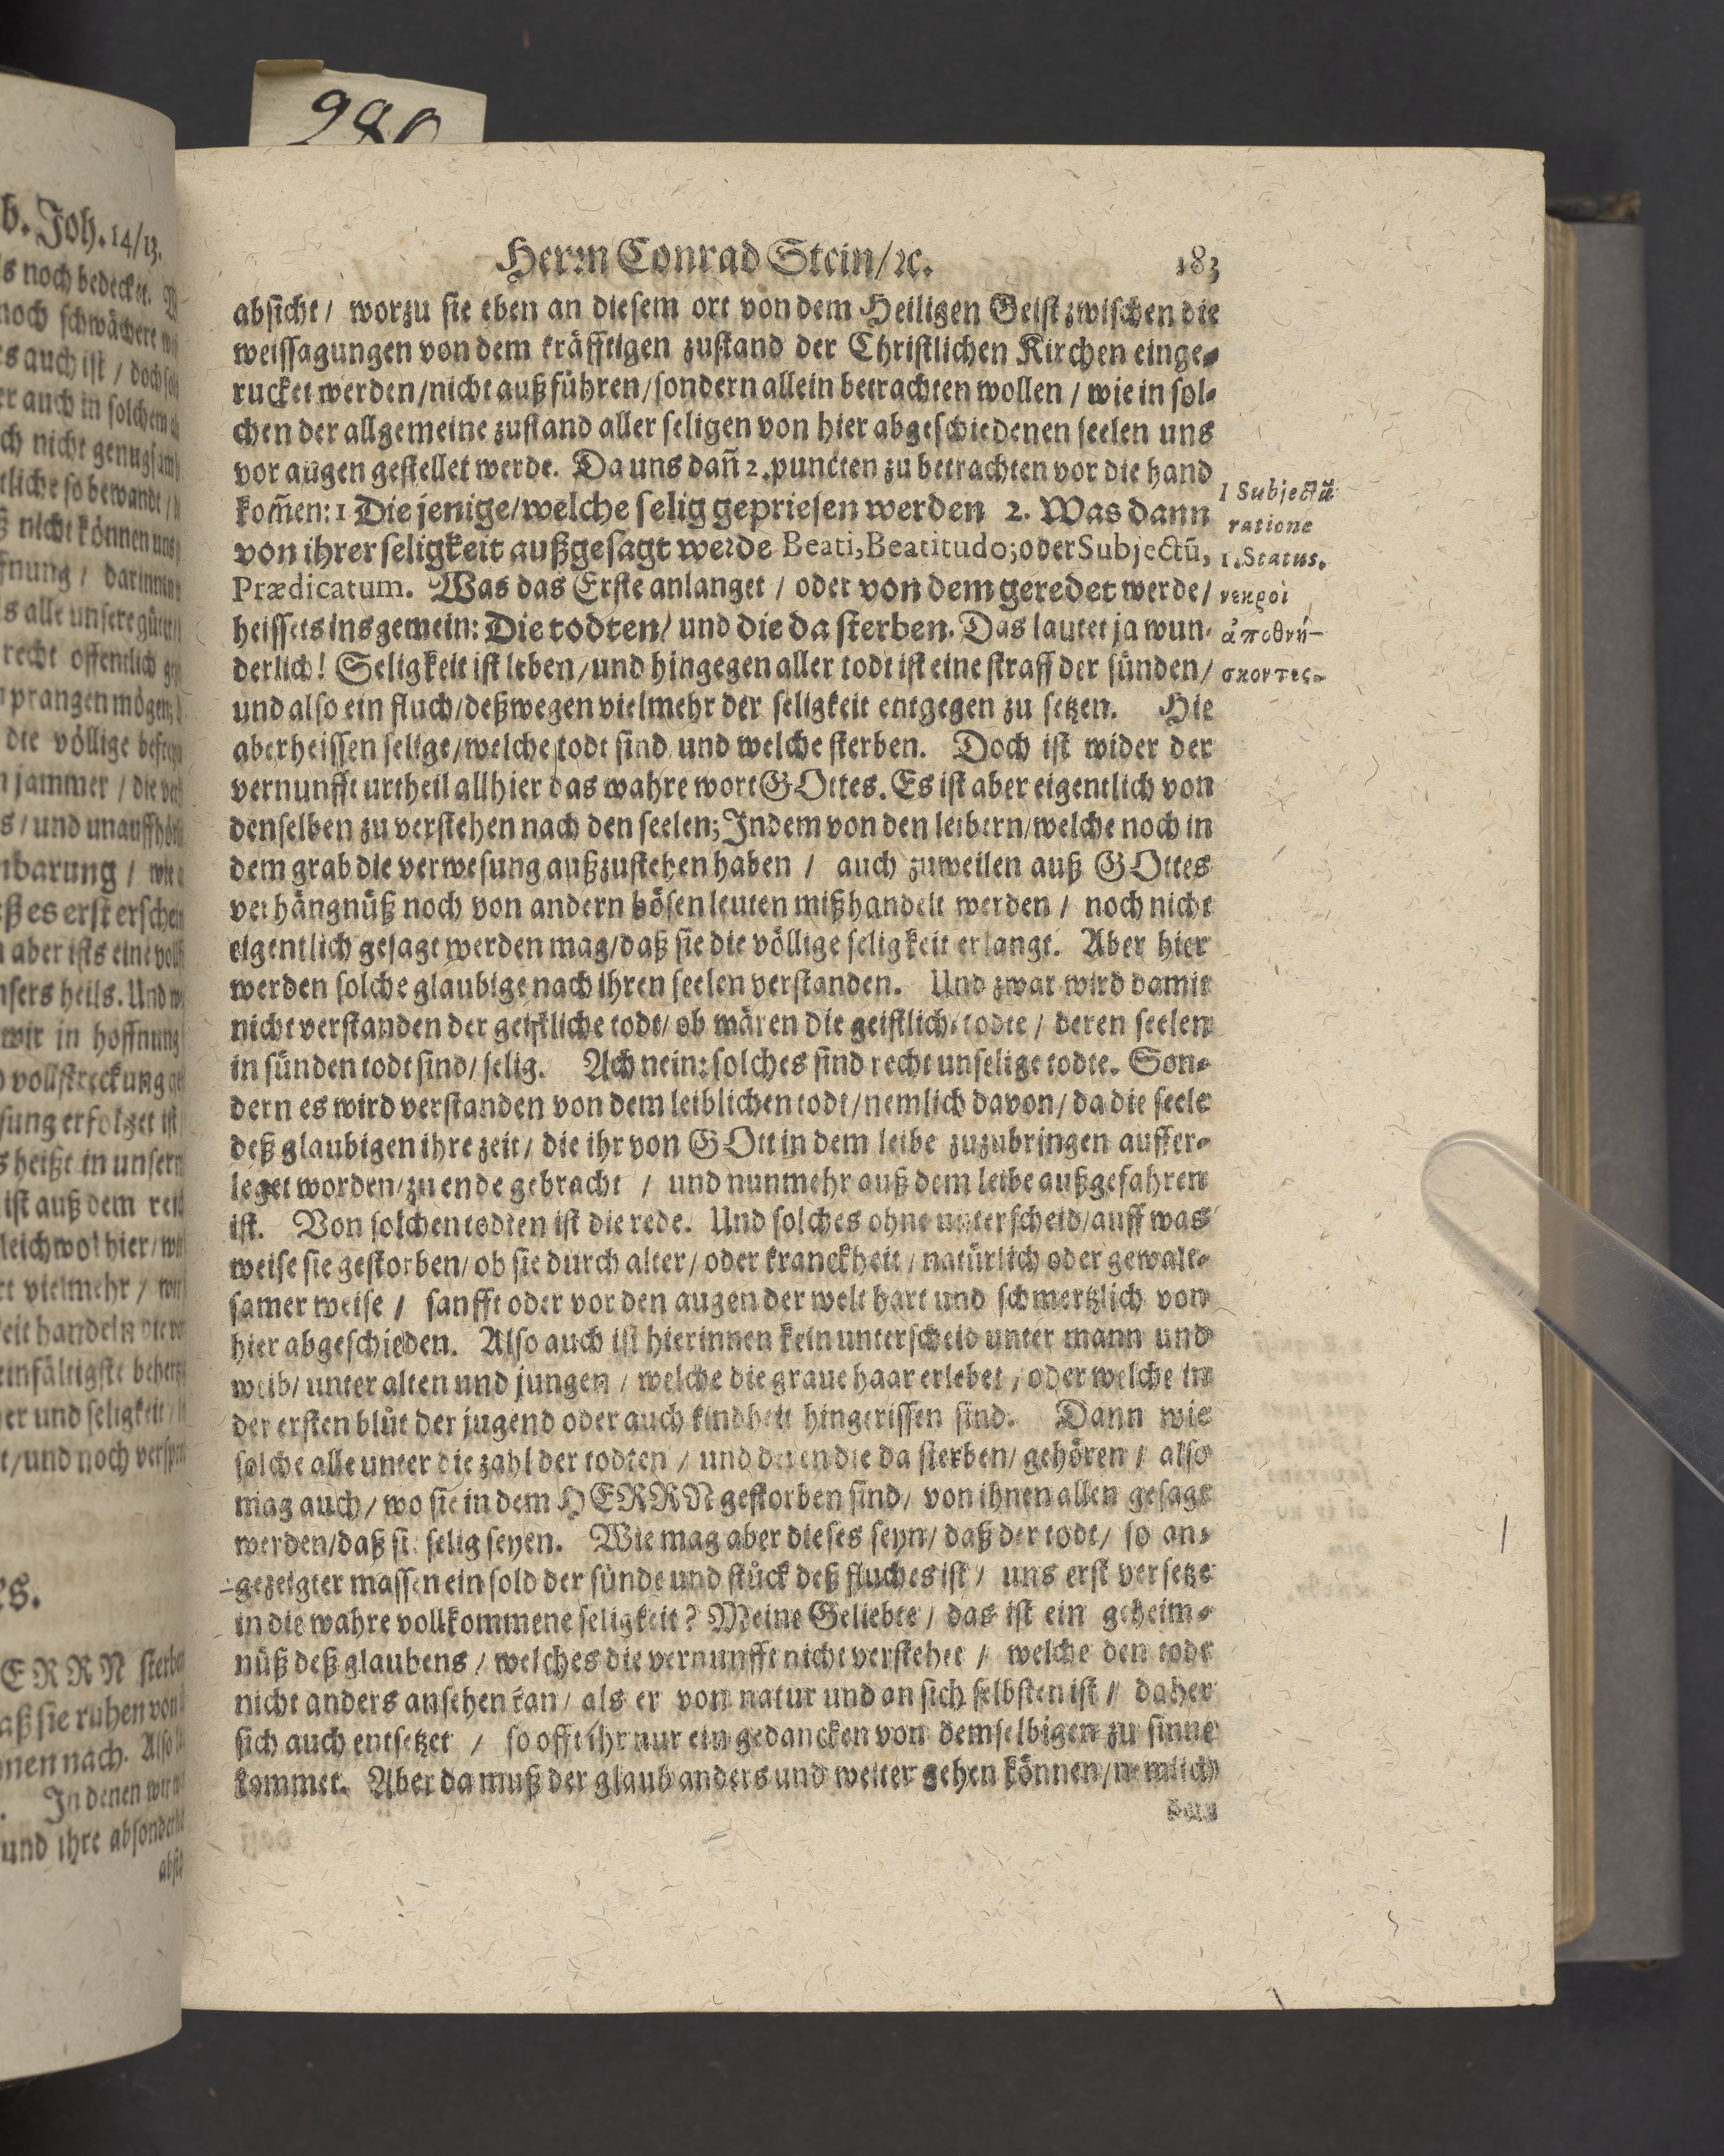 980
b. Joh. 14/13.
s noch bedecket.
noch schwächere
es auch ist / doch
er auch in solchem
ch nicht genugsam
tliche so bewandt /
ß nicht können uns
fnung / darinnen
s alle unsere güter
recht offentlich
prangen mögen
die völlige
jammer / die
s / und unauffhör
nbarung / wie
ß es erst erschei
aber ists eine voll
nsers heils. Und
wir in hoffnung
vollstreckung
sung erfolget ist
s heißt in unsern
ist auß dem
leichwol hier /
rt vielmehr / wir
eit handeln
einfältigste
er und seligkeit /
t / und noch
s.
ERRN sterben
aß sie ruhen von
nen nach. Also
In denen wir
und ihre absonderli
absich
Herrn Conrad Stein/ ꝛc. 183
absicht / worzu sie eben an diesem ort von dem Heiligen Geist zwischen die
weissagungen von dem kräfftigen zustand der Christlichen Kirchen einge-
rucket werden / nicht außführen / sondern allein betrachten wollen / wie in sol-
chen der allgemeine zustand aller seligen von hier abgeschiedenen seelen uns
vor augen gestellet werde. Da uns dañ 2. puncten zu betrachten vor die hand
kom̃en: 1 Die jenige / welche selig gepriesen werden 2. Was dann
von ihrer seligkeit außgesagt werde Beati, Beatitudo; oder Subjectũ,
Prædicatum. Was das Erste anlanget / oder von dem geredet werde /
heissets ins gemein: Die todten / und die da sterben. Das lautet ja wun-
derlich! Seligkeit ist leben / und hingegen aller todt ist eine straff der sünden /
und also ein fluch / deßwegen vielmehr der seligkeit entgegen zu setzen. Hie
aber heissen selige / welche todt sind und welche sterben. Doch ist wider der
vernunfft urtheil allhier das wahre wort GOttes. Es ist aber eigentlich von
denselben zu verstehen nach den seelen; Indem von den leibern / welche noch in
dem grab die verwesung außzustehen haben / auch zuweilen auß GOttes
verhängnüß noch von andern bösen leuten mißhandelt werden / noch nicht
eigentlich gesagt werden mag / daß sie die völlige seligkeit erlangt. Aber hier
werden solche glaubige nach ihren seelen verstanden. Und zwar wird damit
nicht verstanden der geistliche todt / ob wären die geistliche todte / deren seelen
in sünden todt sind / selig. Ach nein: solches sind recht unselige todte. Son-
dern es wird verstanden von dem leiblichen todt / nemlich davon / da die seele
deß glaubigen ihre zeit / die ihr von GOtt in dem leibe zuzubringen auffer-
leget worden / zu ende gebracht / und nunmehr auß dem leibe außgefahren
ist. Von solchen todten ist die rede. Und solches ohne unterscheid / auff was
weise sie gestorben / ob sie durch alter / oder kranckheit / natürlich oder gewalt-
samer weise / sanfft oder vor den augen der welt hart und schmertzlich von
hier abgeschieden. Also auch ist hierinnen kein unterscheid unter mann und
weib / unter alten und jungen / welche die graue haar erlebet / oder welche in
der ersten blüt der jugend oder auch kindheit hingerissen sind. Dann wie
solche alle unter die zahl der todten / und deren die da sterben / gehören / also
mag auch / wo sie in dem HERRN gestorben sind / von ihnen allen gesagt
werden / daß sie selig seyen. Wie mag aber dieses seyn / daß der todt / so an-
gezeigter massen ein sold der sünde und stück deß fluches ist / uns erst versetze
in die wahre vollkommene seligkeit? Meine Geliebte / das ist ein geheim-
nüß deß glaubens / welches die vernunfft nicht verstehet / welche den todt
nicht anders ansehen kan / als er von natur und an sich selbsten ist / daher
sich auch entsetzet / so offt ihr nur ein gedancken von demselbigen zu sinne
kommet. Aber da muß der glaub anders und weiter gehen können / nemlich
1 Subjectũ
ratione
1. Status.
νεκροὶ
ἀποθνή-
σκοντες.